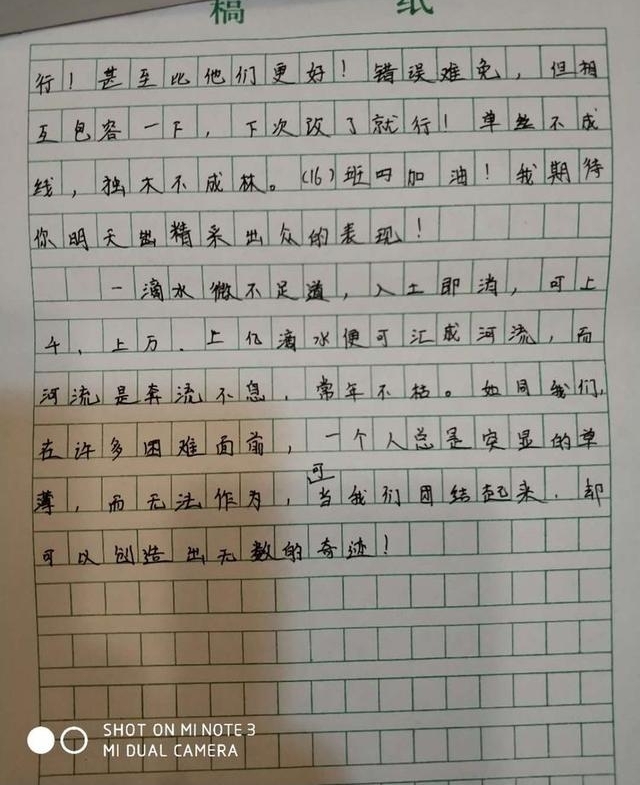 稿 纸
行！甚至比他们更好！错误难免，但相
互包容一下，下次改了就行！单丝不成
线，独木不成林。(16)班吗加油！我期待
你明天出精采出众的表现！
一滴水微不足道，入土即消，可上
千、上万、上亿滴水便可汇成河流，而
河流是奔流不息，常年不枯。如同我们，
在许多困难面前，一个人总是突显的单
薄，而无法作为，可当我们团结起来，却
可以创造出无数的奇迹！
SHOT ON MI NOTE 3
MI DUAL CAMERA